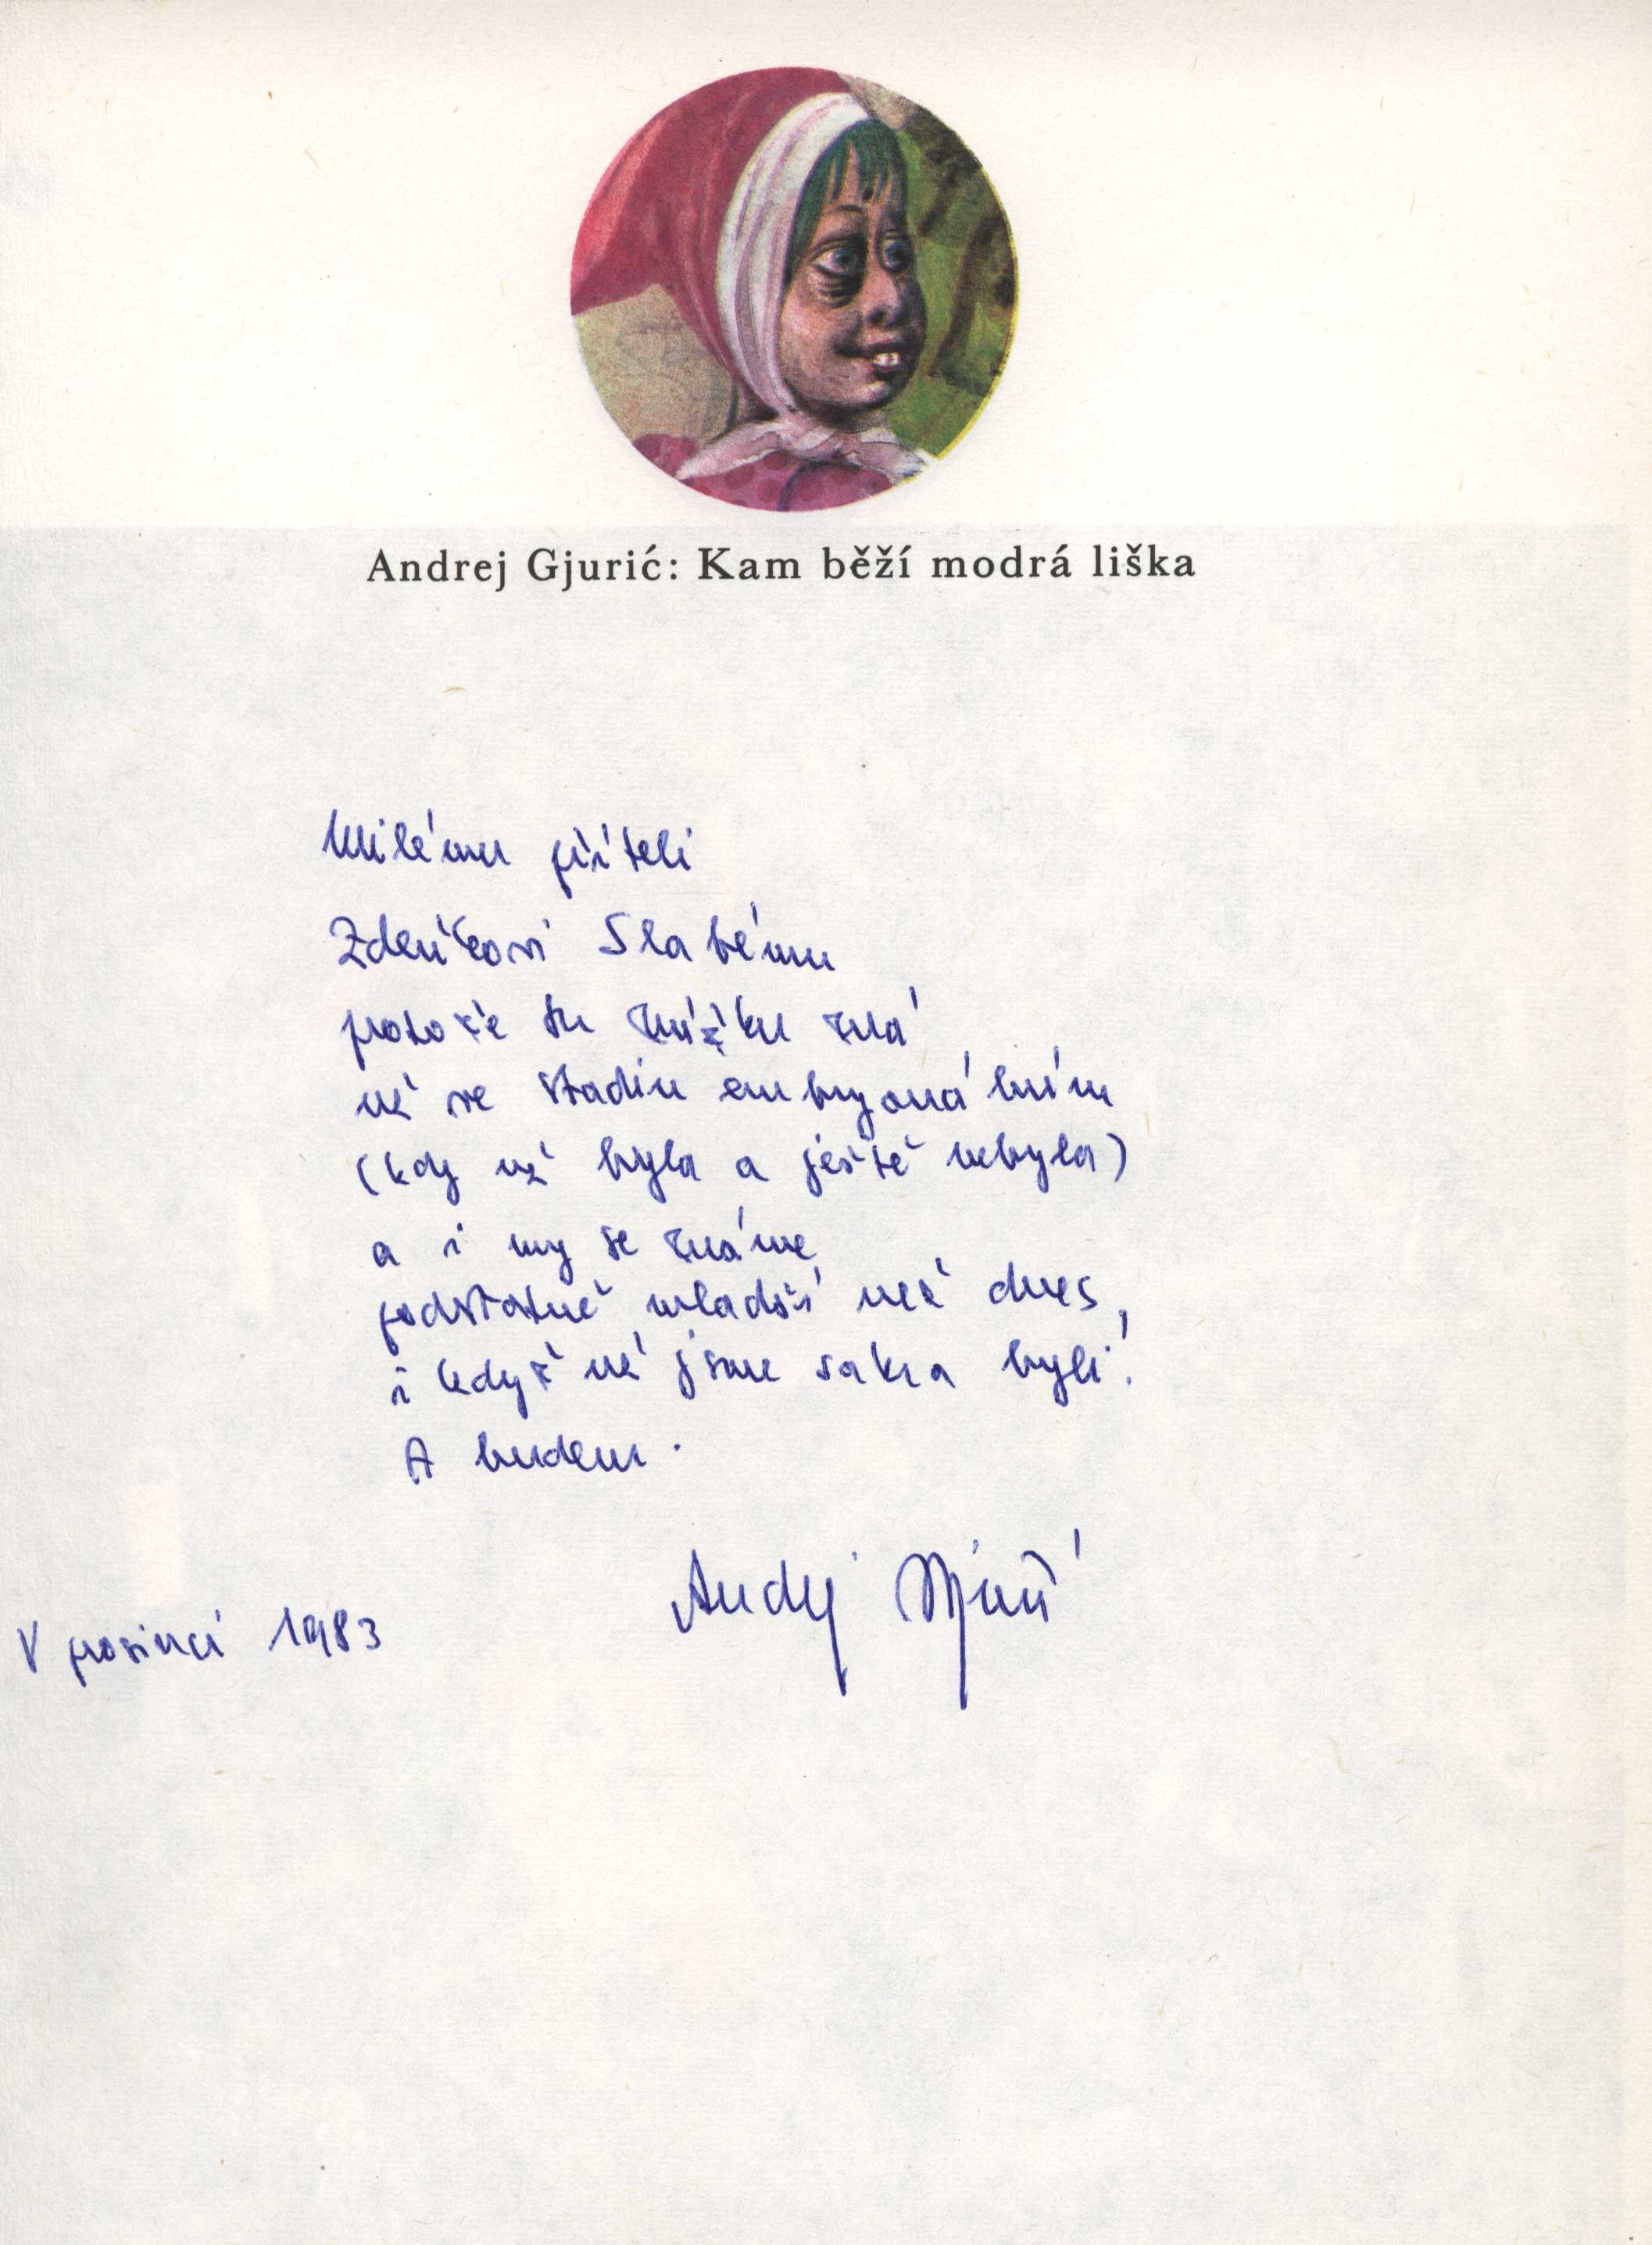 Andrej Gjurić: Kam běží modrá liška
Milému příteli
Zdeňkovi Slabému
protože tu knížku zná
už ve stadiu embryonálním
(kdy už byla a ještě nebyla)
a i my se známe
podstatně mladší než dnes,
i když už jsme sakra byli!
A budem.
Andrej Gjurić
V prosinci 1983